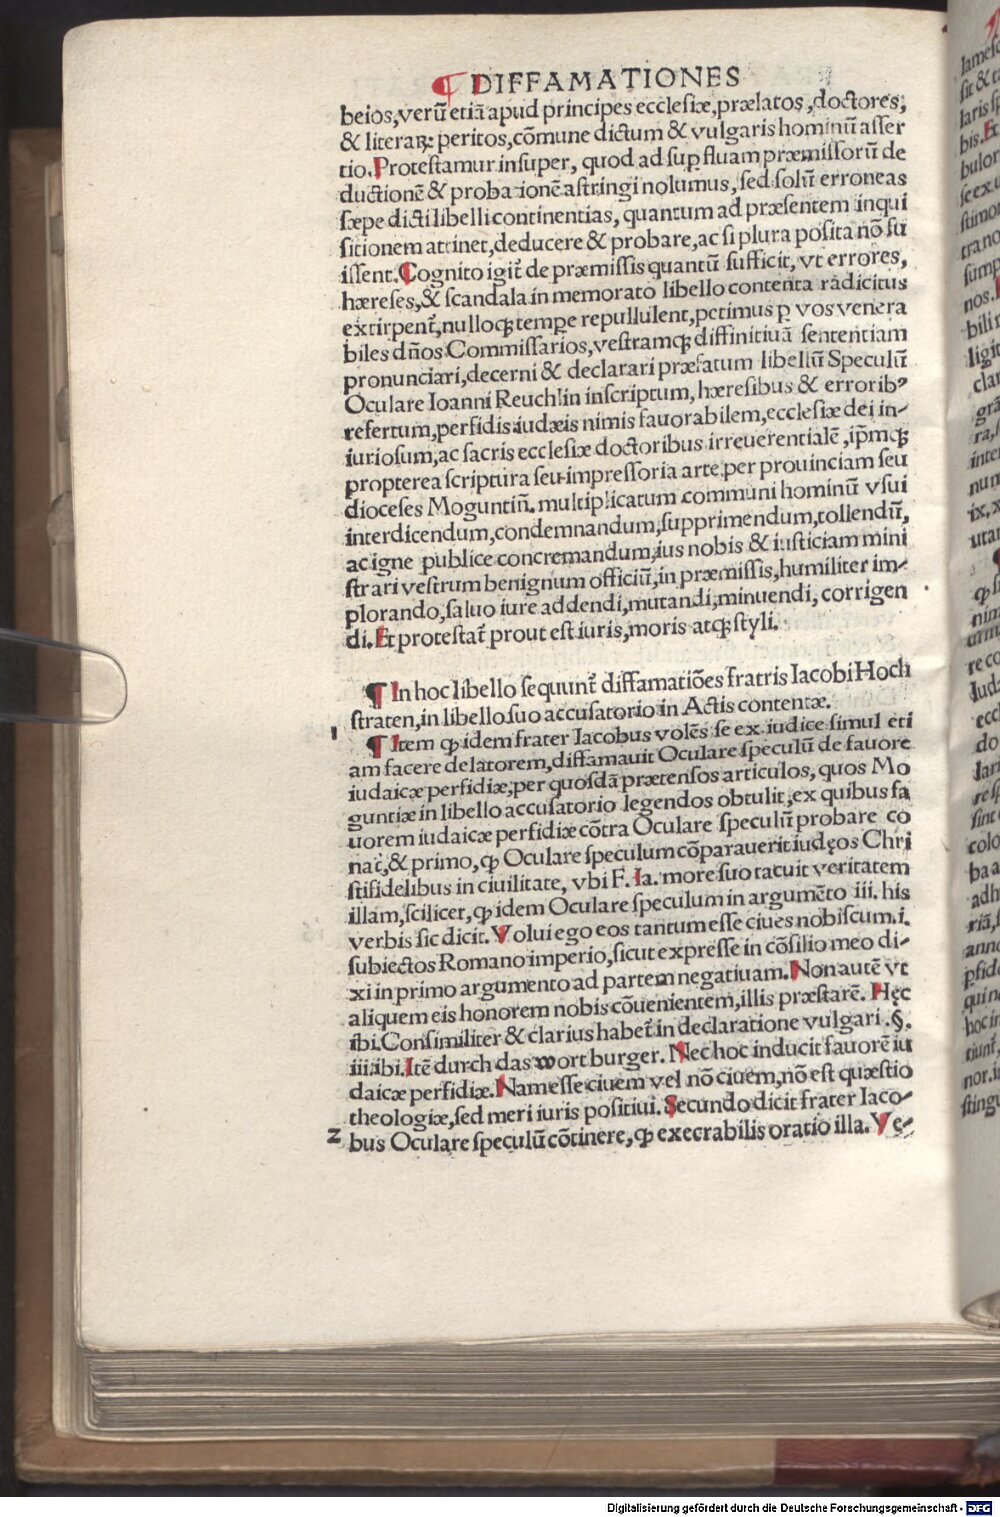 ¶ DIFFAMATIONES
beios, verū etiā apud principes ecclesiæ, prælatos, doctores,
& literaꝝ peritos, cōmune dictum & vulgaris hominū asser
tio. Protestamur insuper, quod ad supfluam præmissorū de
ductionē & probationē astringi nolumus, sed solū erroneas
sæpe dicti libelli continentias, quantum ad præsentem inqui
sitionem attinet, deducere & probare, ac si plura posita nō fu
issent. Cognito igit̄ de præmissis quantū sufficit, vt errores,
hæreses, & scandala in memorato libello contenta radicitus
extirpent̄, nulloq; tempe repullulent, petimus p vos venera
biles dños Commissarios, vestramq; diffinitiuā sententiam
pronunciari, decerni & declarari præfatum libellū Speculū
Oculare Ioanni Reuchlin inscriptum, hæresibus & errorib⁹
refertum, perfidis iudæis nimis fauorabilem, ecclesiæ dei in-
iuriosum, ac sacris ecclesiæ doctoribus irreuerentialē, ip̄mq;
propterea scriptura seu impressoria arte per prouinciam seu
dioceses Moguntiñ. multiplicatum communi hominū vsui
interdicendum, condemnandum, supprimendum, tollendū,
ac igne publice concremandum, ius nobis & iusticiam mini
strari vestrum benignum officiū, in præmissis, humiliter im-
plorando, saluo iure addendi, mutandi, minuendi, corrigen
di. Et protestat̄ prout est iuris, moris atq; styli.
¶ In hoc libello sequunt̄ diffamatiões fratris Iacobi Hoch
straten, in libello suo accusatorio in Actis contentæ.
1 ¶ Item ꝙ idem frater Iacobus volēs se ex iudice simul eti
am facere delatorem, diffamauit Oculare speculū de fauore
iudaicæ perfidiæ, per quosdā prætensos articulos, quos Mo
guntiæ in libello accusatorio legendos obtulit, ex quibus fa
uorem iudaicæ perfidiæ cōtra Oculare speculū probare co
nat̄, & primo, ꝙ Oculare speculum cōparauerit iudęos Chri
stifidelibus in ciuilitate, vbi F. Ia. more suo tacuit veritatem
illam, scilicet, ꝙ idem Oculare speculum in argumēto iii. his
verbis sic dicit. Volui ego eos tantum esse ciues nobiscum. i.
subiectos Romano imperio, sicut expresse in cōsilio meo di-
xi in primo argumento ad partem negatiuam. Non autē vt
aliquem eis honorem nobis cōuenientem, illis præstarē. Hęc
ibi. Consimiliter & clarius habet̄ in declaratione vulgari . §.
iii ibi. Itē durch das wort burger. Nec hoc inducit fauorē iu
daicæ perfidiæ. Nam esse ciuem vel nō ciuem, nō est quæstio
theologiæ, sed meri iuris positiui. Secundo dicit frater Iaco-
2 bus Oculare speculū cōtinere, ꝙ execrabilis oratio illa. Ve-
Digitalisierung gefördert durch die Deutsche Forschungsgemeinschaft - DFG